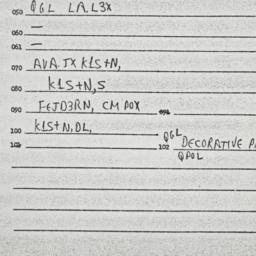 050 QGL LA.L3X
060 —
061 —
070 AVA.TX KLS+N,
080 KLS+N,S
090 FEJD3RN, CM POX
100 KLS+N,DL,
QGL
102 DECORATIVE
QPOL